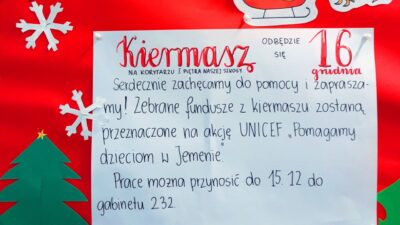 Kiermasz ODBĘDZIE SIĘ 16 grudnia
NA KORYTARZU I PIĘTRA NASZEJ SZKOŁY
Serdecznie zachęcamy do pomocy i zaprasza-
my! Zebrane fundusze z kiermaszu zostaną
przeznaczone na akcję UNICEF „Pomagamy
dzieciom w Jemenie".
Prace można przynosić do 15.12 do
gabinetu 232.